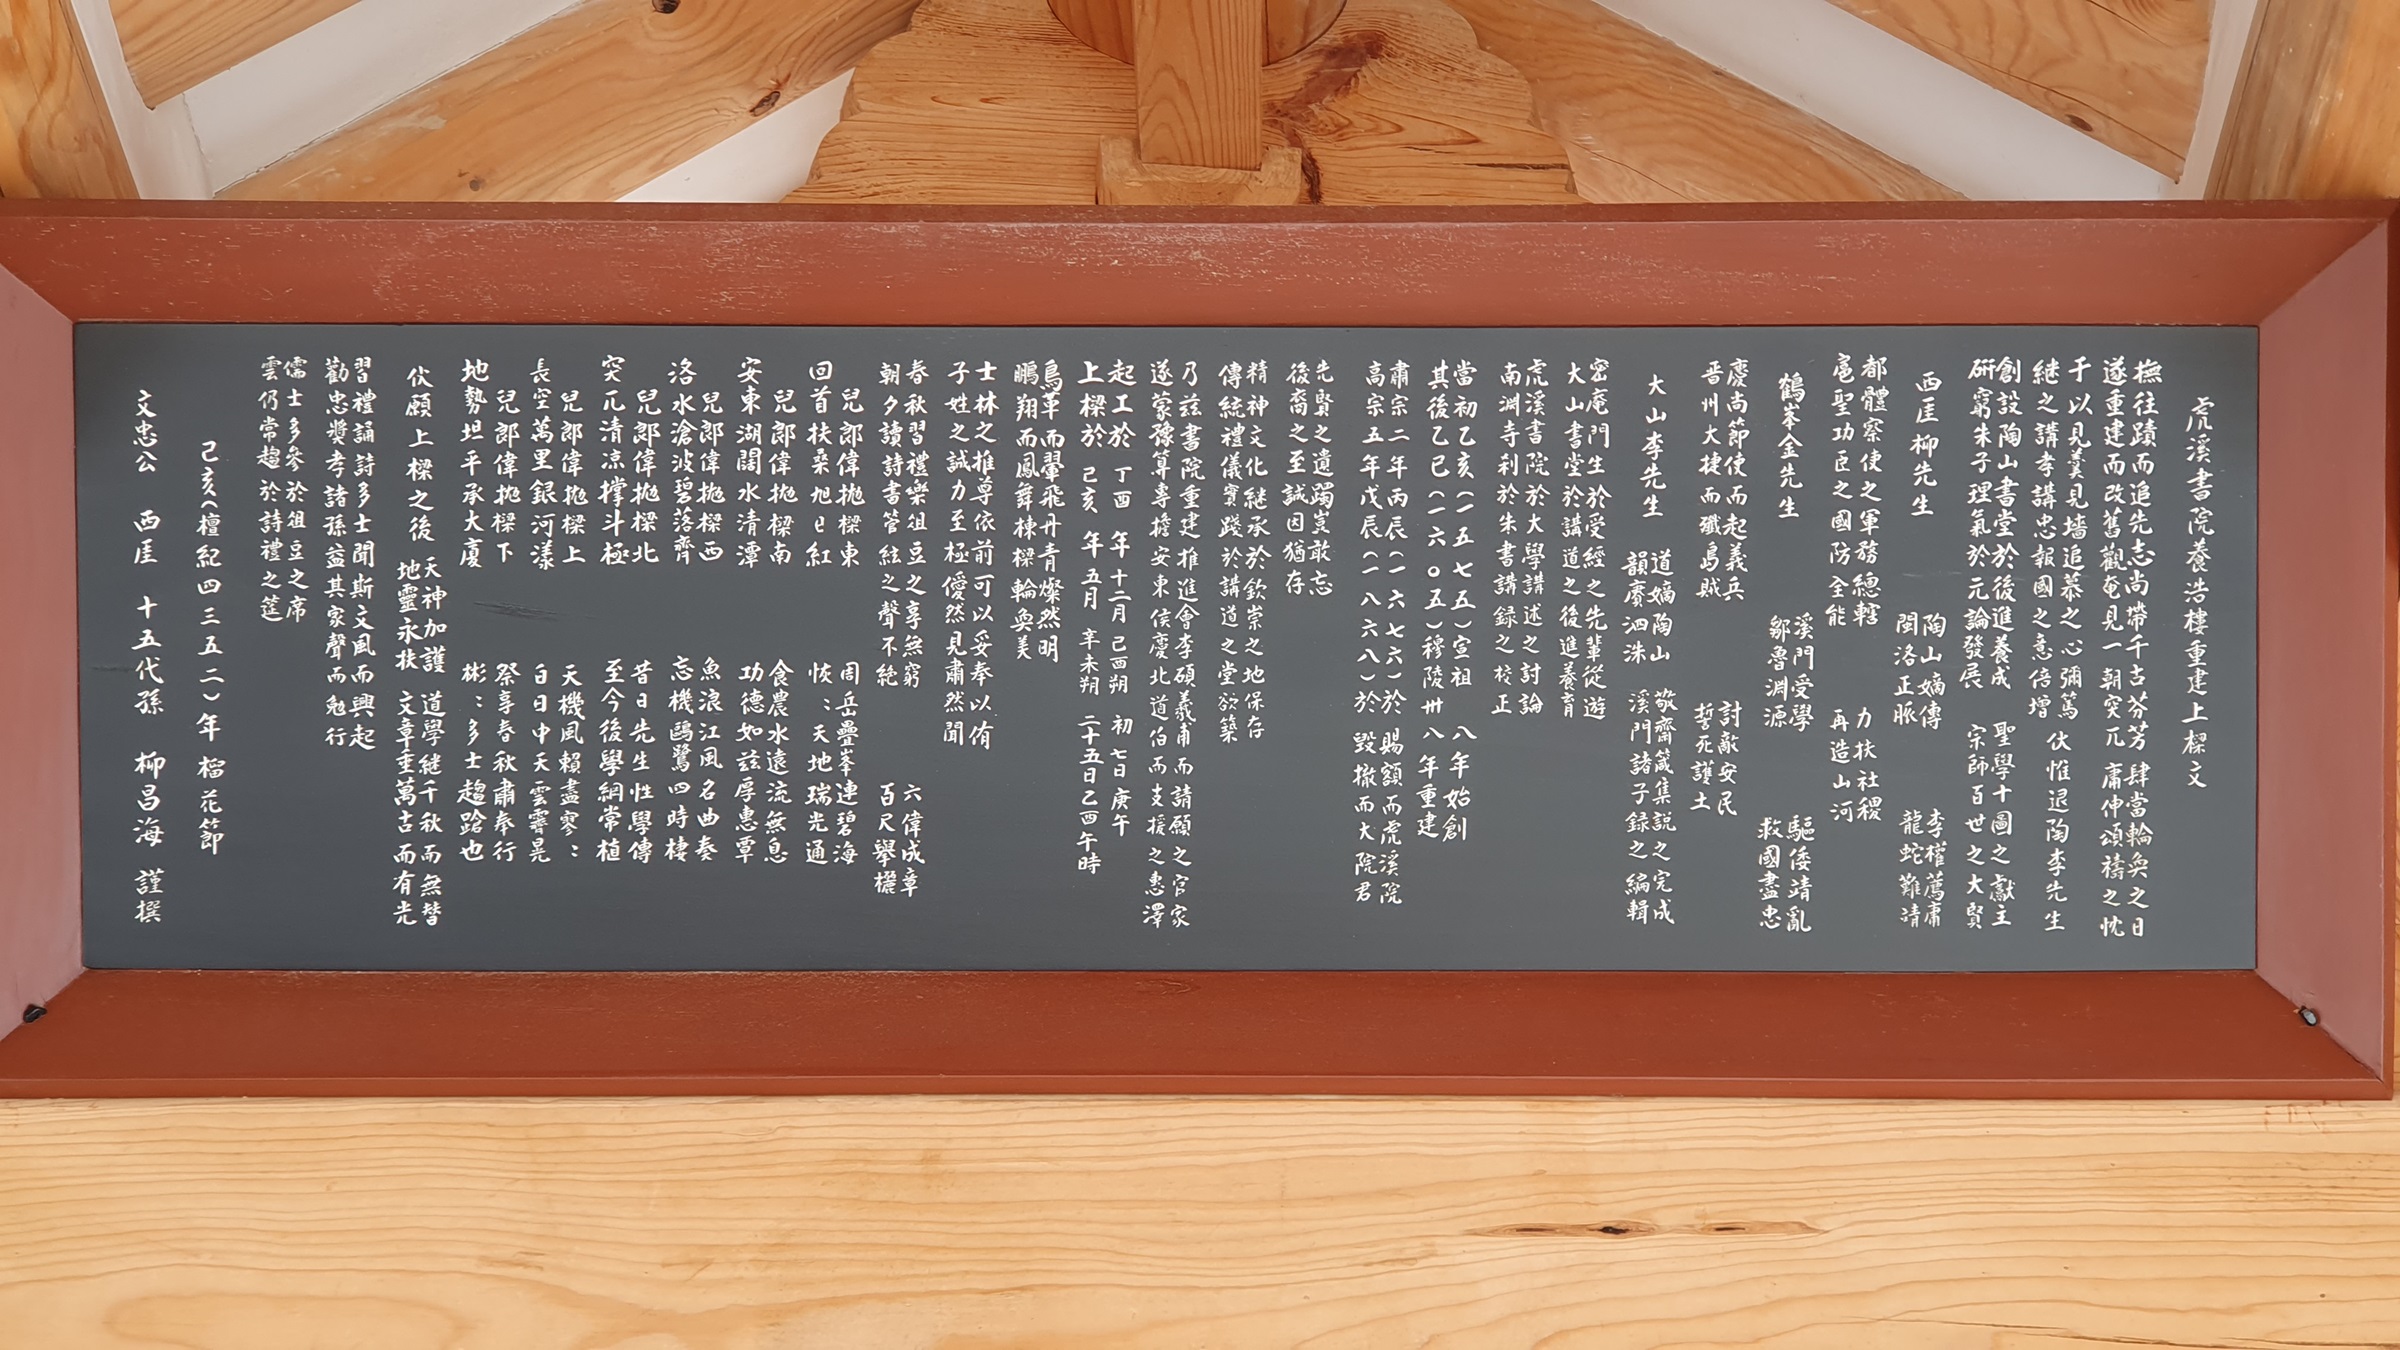 虎溪書院養浩樓重建上樑文
撫往蹟而追先志尚帶千古芬芳肆當輪奐之日
遂重建而改舊觀奄見一朝突兀庸伸頌禱之忱
于以見羹見墻追慕之心彌篤
继之講孝講忠報國之意倍增
伏惟退陶李先生
創設陶山書堂於後進養成
硏窮朱子理氣於元論發展
聖學十圖之獻主
宗師百世之大賢
西厓柳先生
陶山嫡傳
閩洛正脈
力扶社稷
再造山河
李權薦庸
龍蛇難靖
都體察使之軍務總轄
扈聖功臣之國防全能
鶴峯金先生
溪門受學
鄒魯淵源
討敵安民
誓死護土
驅倭靖亂
救國盡忠
慶尚節使而起義兵
晋州大捷而殲島賊
大山李先生
道嫡陶山
韻賡泗洙
敬齋箴集説之完成
溪門諸子録之編輯
密庵門生於受經之先輩從遊
大山書堂於講道之後進養育
虎溪書院於大學講述之討論
南淵寺刹於朱書講録之校正
當初乙亥(一五七五)宣祖 八年始創
其後乙巳(一六〇五)穆陵卅八年重建
肅宗二年丙辰(一六七六)於賜額而虎溪院
高宗五年戊辰(一八六八)於毀撤而大院君
先賢之遺躅豈敢忘
後裔之至誠因猶存
精神文化継承於欽崇之地保存
傳統禮儀實踐於講道之堂欲築
乃兹書院重建推進會李碩羲甫而請願之官家
遂蒙豫算專擔安東侯慶北道伯而支援之惠澤
起工於 丁酉 年 十二月 己酉朔 初七日 庚午
上樑於 己亥 年 五月 辛未朔 二十五日 乙酉 午時
鳥革而翬飛丹青燦然明
鵬翔而鳳舞棟樑輪奐美
士林之推尊依前可以妥奉以侑
子姓之誠力至極僾然見肅然聞
春秋習禮樂俎豆之享無窮
朝夕讀詩書管絃之聲不絶
六偉成章
百尺舉欐
兒郎偉抛樑東
回首扶桑旭日紅
周岳疊峯連碧海
恢〻天地瑞光通
兒郎偉抛樑南
安東湖闊水清潭
食農水遠流無息
功德如兹厚惠覃
兒郎偉抛樑西
洛水滄波碧落齊
魚浪江風名曲奏
忘機鷗鷺四時棲
兒郎偉抛樑北
突兀清凉撑斗極
昔日先生性學傳
至今後學綱常植
兒郎偉抛樑上
長空萬里銀河漾
天機風賴盡寥〻
白日中天雲霽晃
兒郎偉抛樑下
地勢坦平承大廈
祭享春秋肅奉行
彬〻多士趨蹌也
伏願上樑之後
天神加護
地靈永扶
道學継千秋而無替
文章垂萬古而有光
習禮誦詩多士聞斯文風而興起
勸忠獎孝諸孫益其家聲而勉行
儒士多參於俎豆之席
雲仍常趨於詩禮之筵
己亥(檀紀四三五二)年榴花節
文忠公 西厓 十五代孫 柳昌海 謹撰